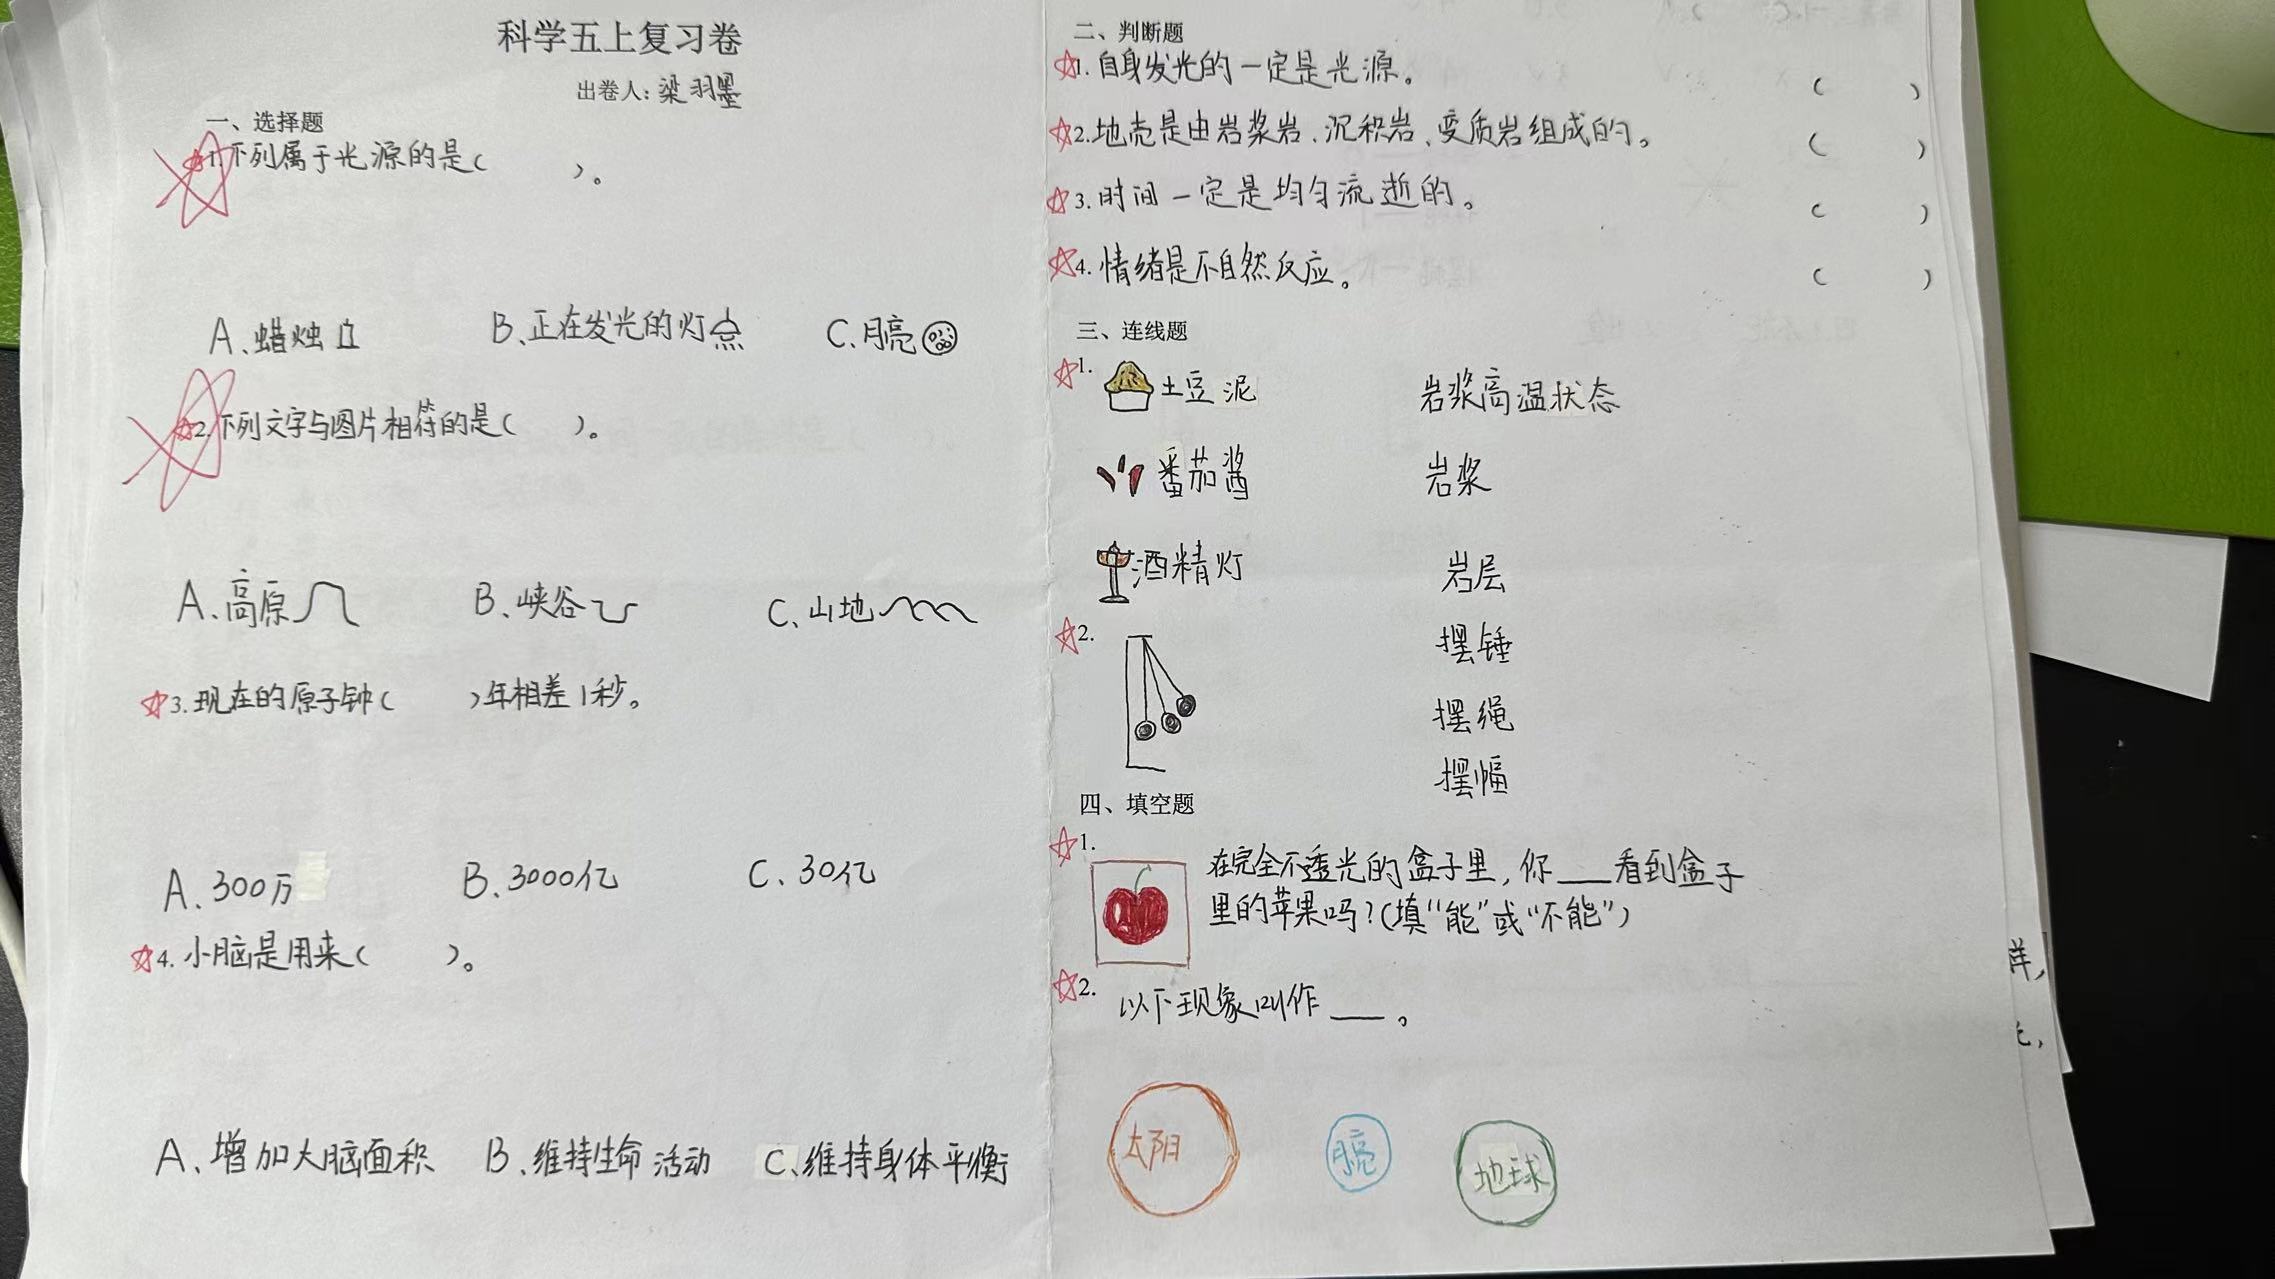 科学五上复习卷
出卷人：梁羽墨
一、选择题
1.下列属于光源的是（ ）。
A、蜡烛 B、正在发光的灯 C、月亮
2.下列文字与图片相符的是（ ）。
A、高原 B、峡谷 C、山地
3.现在的原子钟（ ）年相差1秒。
A、300万 B、3000亿 C、30亿
4.小脑是用来（ ）。
A、增加大脑面积 B、维持生命活动 C、维持身体平衡
二、判断题
1.自身发光的一定是光源。 （ ）
2.地壳是由岩浆岩、沉积岩、变质岩组成的。 （ ）
3.时间一定是均匀流逝的。 （ ）
4.情绪是不自然反应。 （ ）
三、连线题
1. 土豆泥 岩浆高温状态
番茄酱 岩浆
酒精灯 岩层
2. 摆锤
摆绳
摆幅
四、填空题
1. 在完全不透光的盒子里，你___看到盒子
里的苹果吗？（填“能”或“不能”）
2. 以下现象叫作___。
太阳 月亮 地球